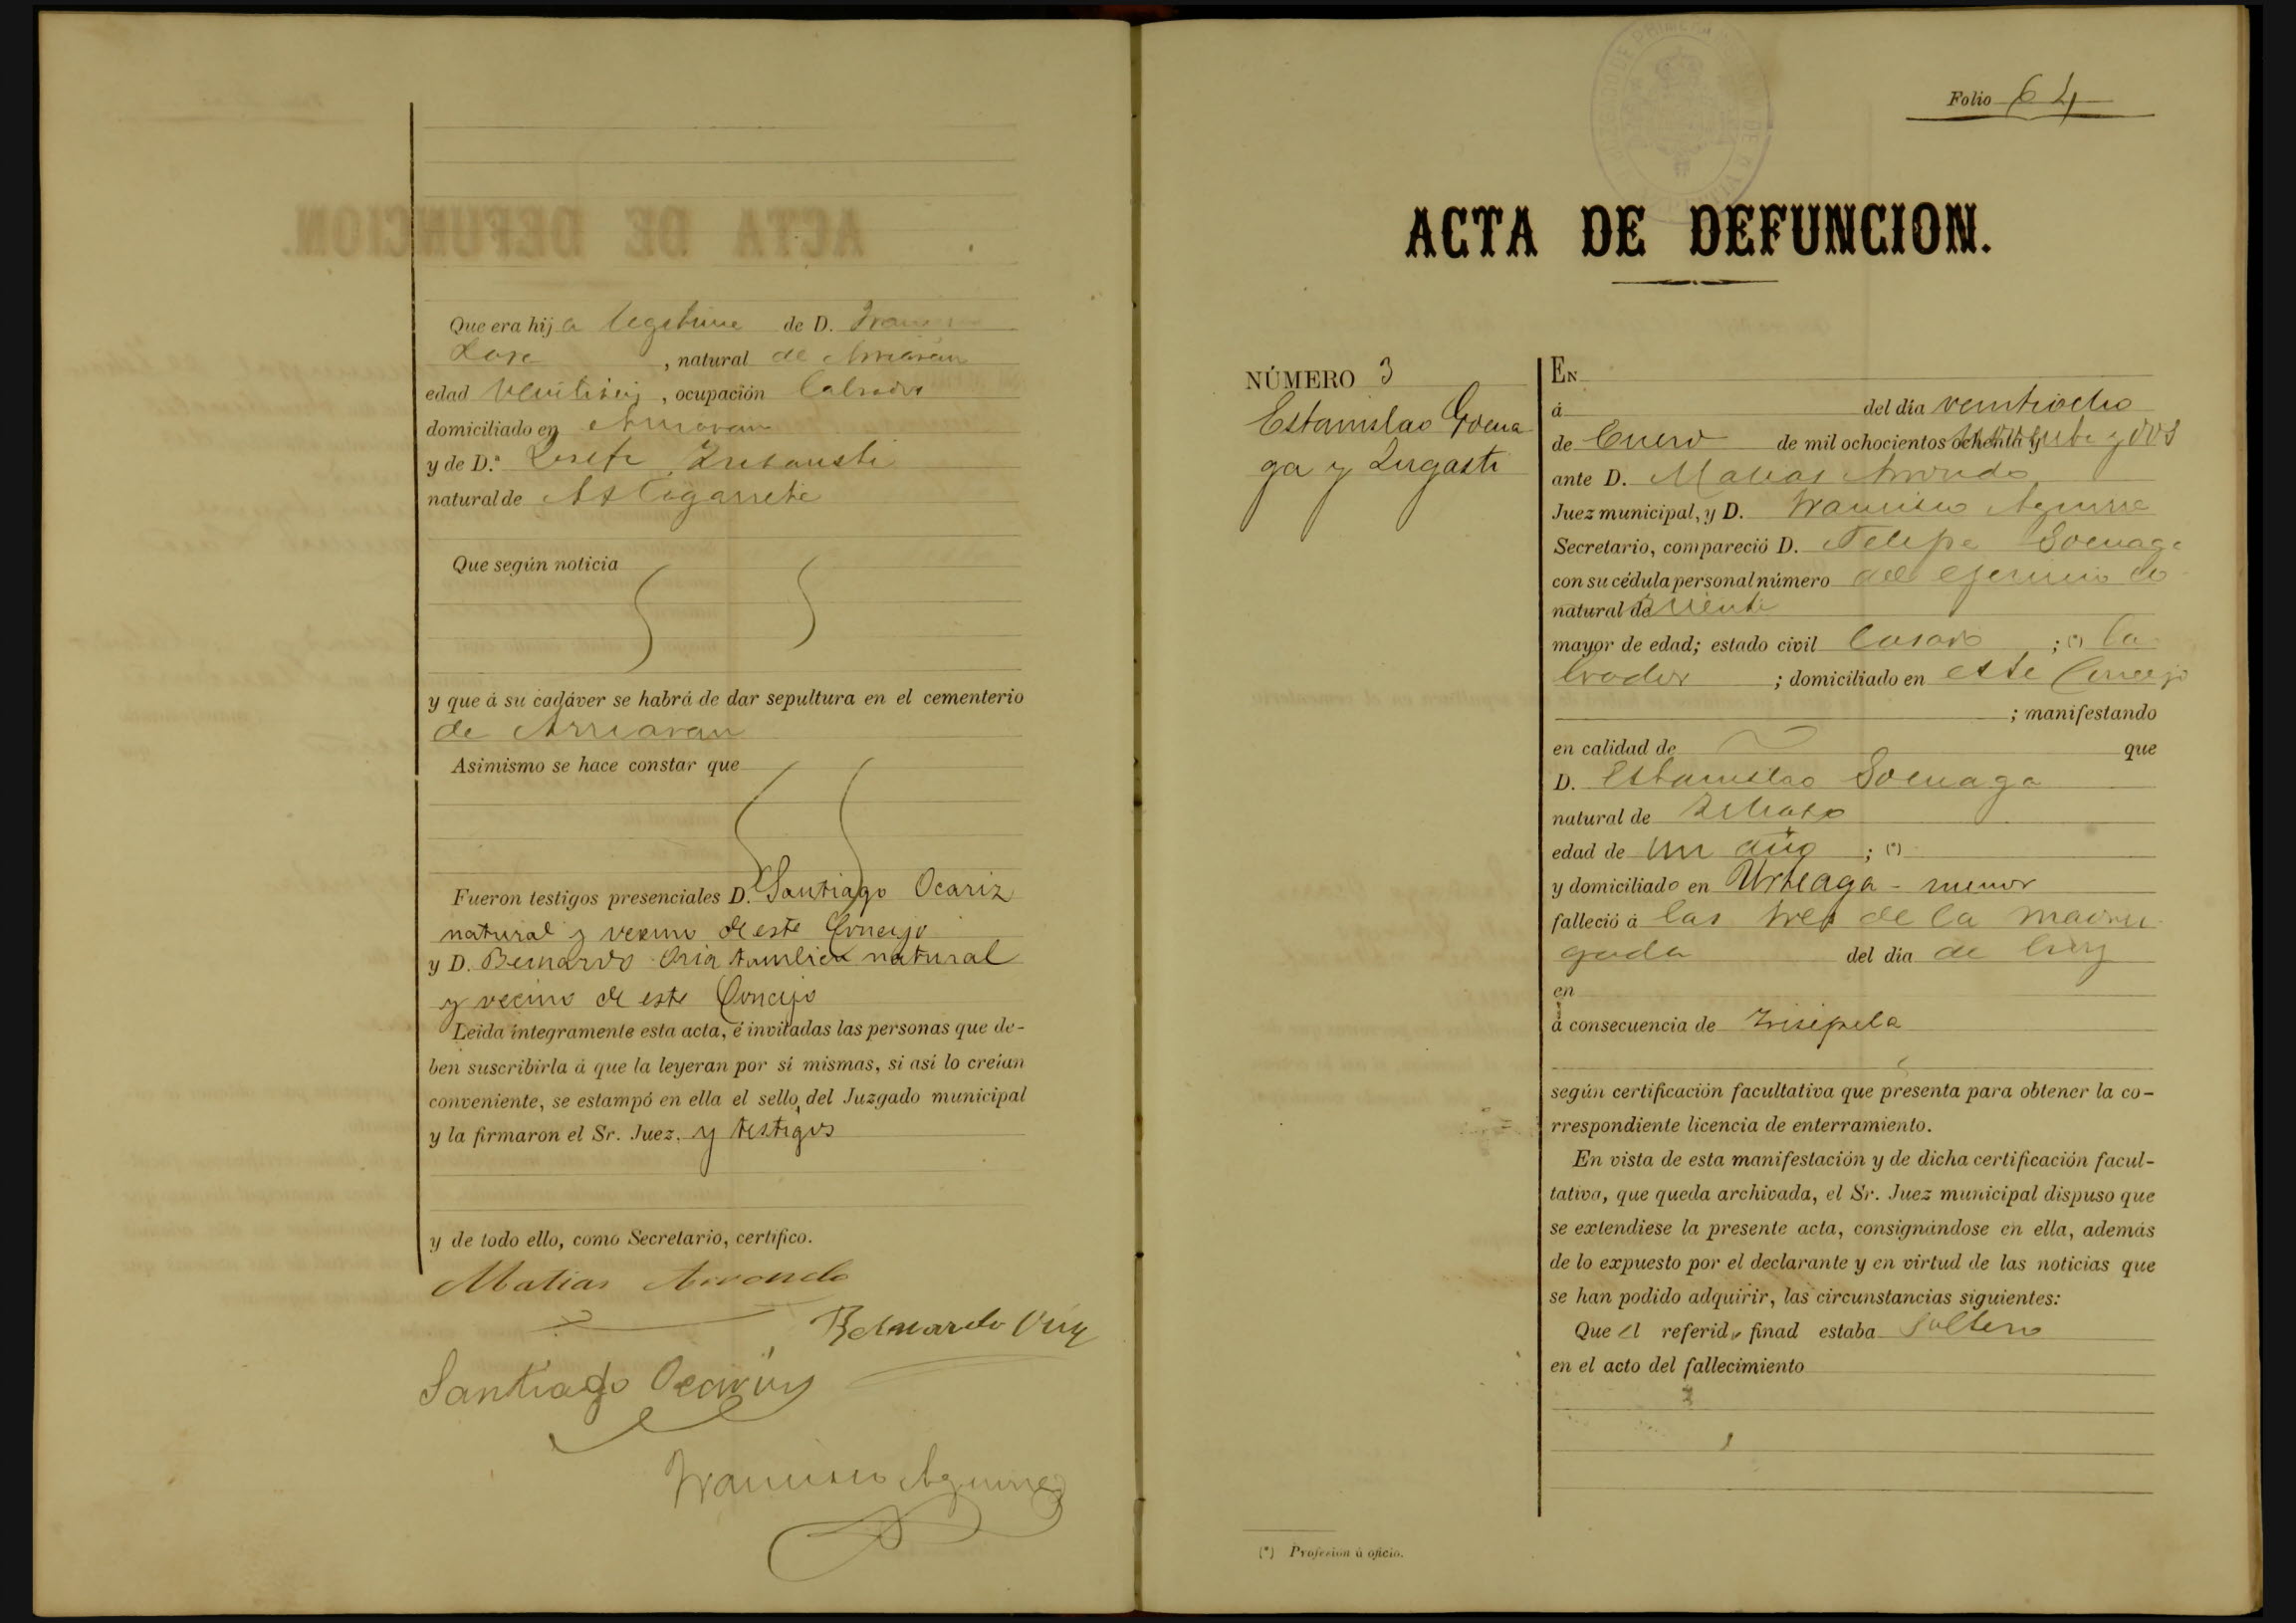 Que era hija legitima de D.
Jose, natural de Arriaran
edad , ocupación Labrador
domiciliado en Arriaran
y de D.ª Josefa
natural de Astigarreta
Que según noticia
y que á su cadáver se habrá de dar sepultura en el cementerio
de Arriaran
Asimismo se hace constar que
Fueron testigos presenciales D. Santiago Ocariz
natural y vecino de este Concejo
y D. Bernardo Oria tambien natural
y vecino de este Concejo
Leida íntegramente esta acta, é invitadas las personas que de-
ben suscribirla á que la leyeran por sí mismas, si así lo creían
conveniente, se estampó en ella el sello del Juzgado municipal
y la firmaron el Sr. Juez, y testigos
y de todo ello, como Secretario, certifico.
Matias
Bernardo
Santiago Ocariz
Francisco Aguirre
Folio 64
ACTA DE DEFUNCION.
NÚMERO 3
Estanislao Goena
ga y
EN
á del dia veintiocho
de Enero de mil ochocientos ochenta y noventa y dos
ante D. Matias
Juez municipal, y D. Francisco Aguirre
Secretario, compareció D. Felipe Goenaga
con su cédula personal número del ejercicio
natural de
mayor de edad; estado civil Casado ; (*) La
brador ; domiciliado en este Concejo
; manifestando
en calidad de que
D. Estanislao Goenaga
natural de
edad de un año ; (*)
y domiciliado en Urteaga - menor
falleció á las tres de la madru
gada del dia de hoy
en
á consecuencia de Erisipela
según certificación facultativa que presenta para obtener la co-
rrespondiente licencia de enterramiento.
En vista de esta manifestación y de dicha certificación facul-
tativa, que queda archivada, el Sr. Juez municipal dispuso que
se extendiese la presente acta, consignándose en ella, además
de lo expuesto por el declarante y en virtud de las noticias que
se han podido adquirir, las circunstancias siguientes:
Que el referido finad estaba Soltero
en el acto del fallecimiento
(*) Profesión ú oficio.